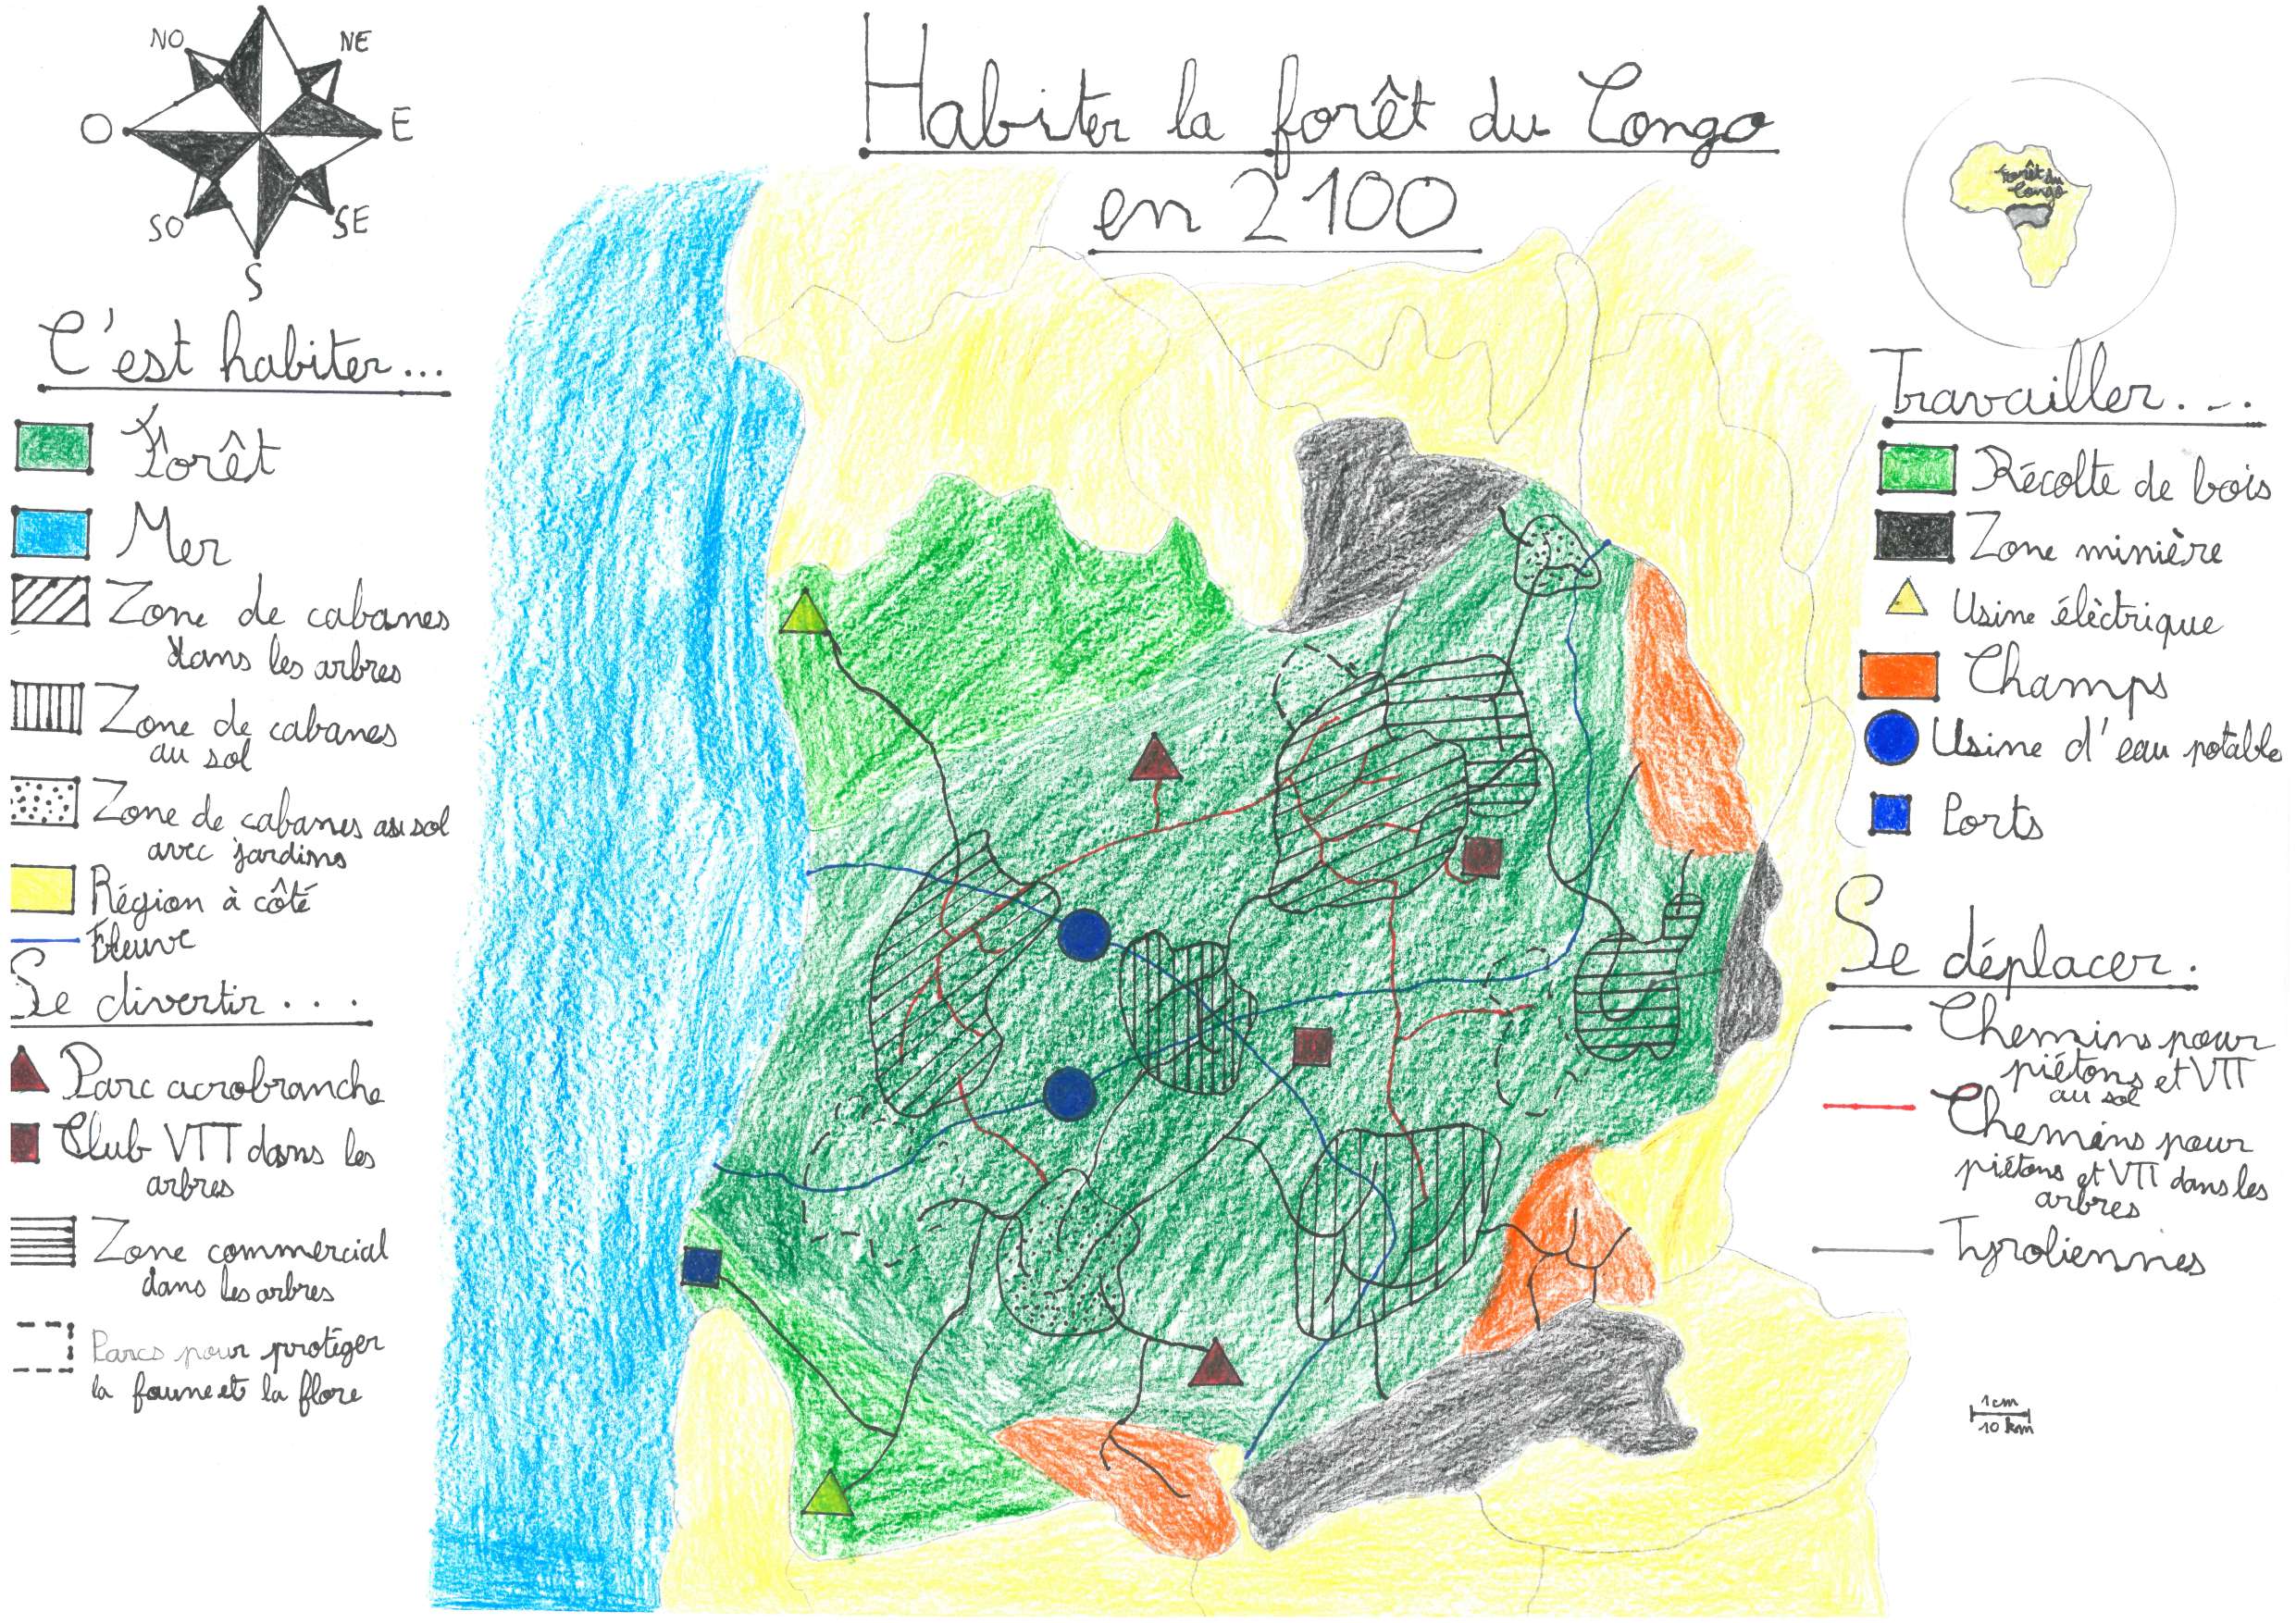 Habiter la forêt du Congo
en 2100
NO
NE
O
E
SO
SE
S
Forêt du
Congo
C'est habiter...
Forêt
Mer
Zone de cabanes
dans les arbres
Zone de cabanes
au sol
Zone de cabanes au sol
avec jardins
Région à côté
Fleuve
Se divertir...
Parc acrobranche
Club VTT dans les
arbres
Zone commercial
dans les arbres
Parcs pour protéger
la faune et la flore
Travailler...
Récolte de bois
Zone minière
Usine élèctrique
Champs
Usine d'eau potable
Ports
Se déplacer.
Chemins pour
piétons et VTT
au sol
Chemins pour
piétons et VTT dans les
arbres
Tyroliennes
1cm
10 km